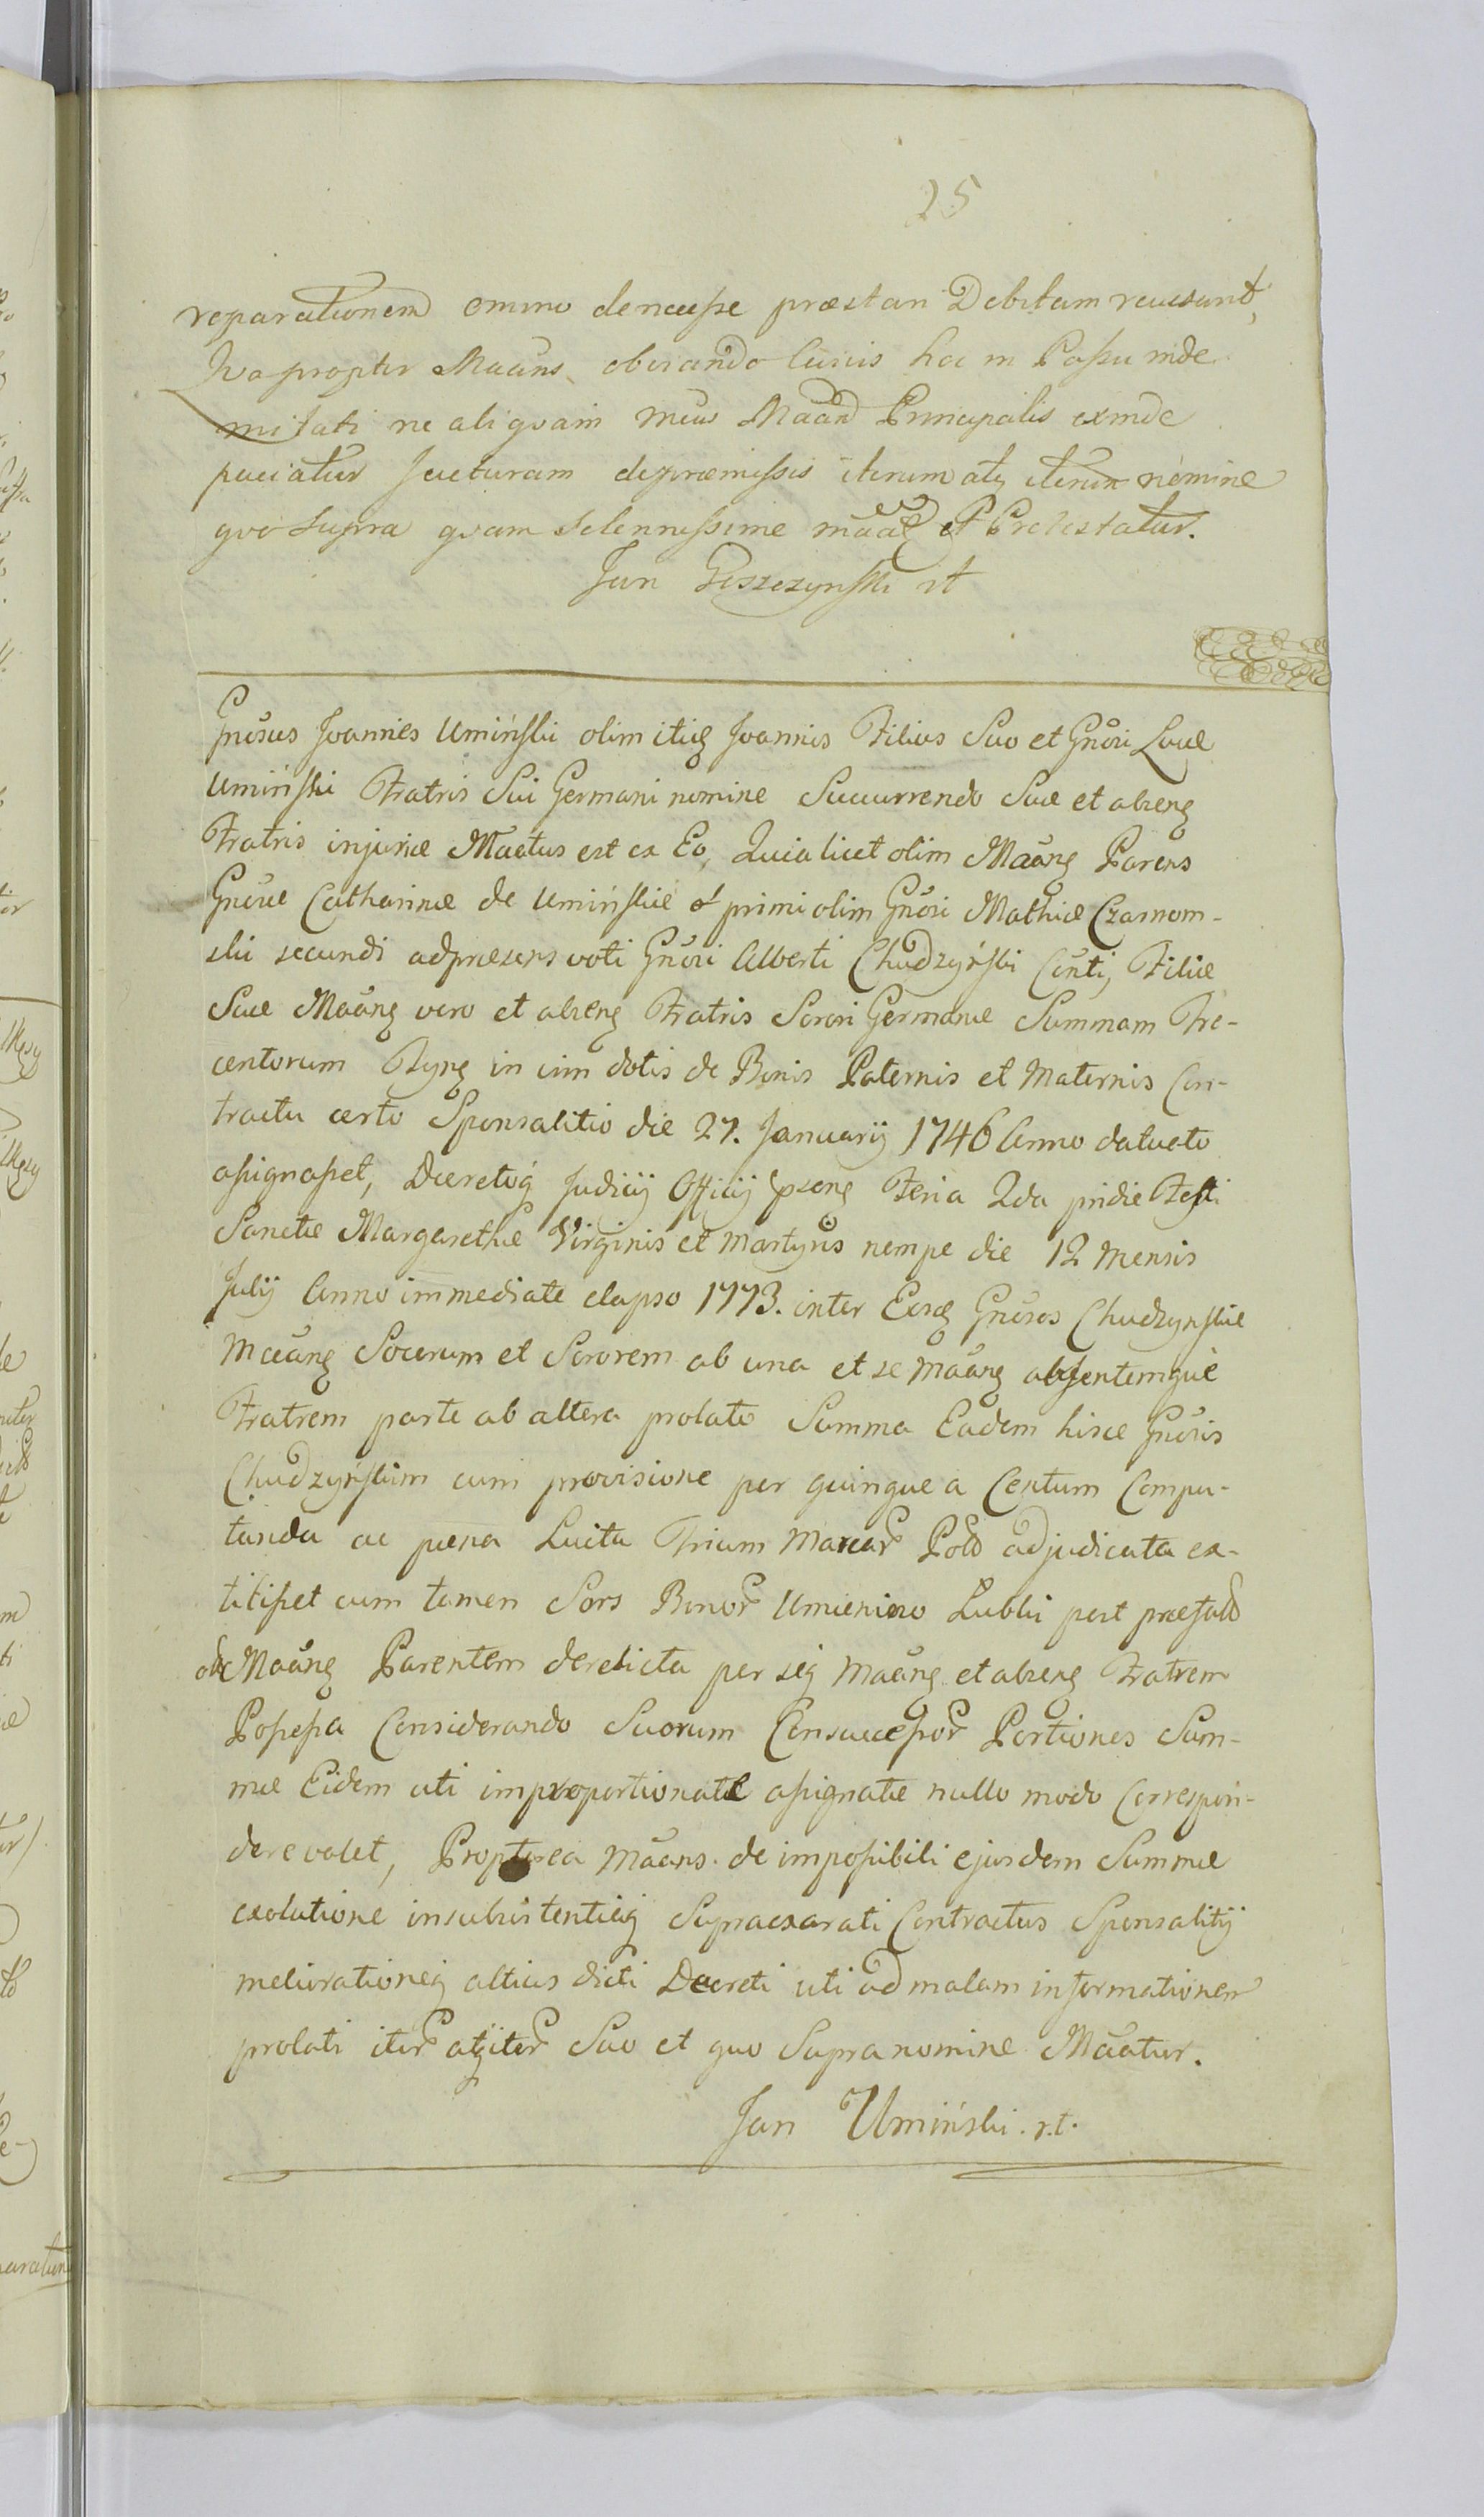 25
reparationem omnino denecesse præstari Debitam recusant,
Qvapropter Maans obviando liciis hoc in Passu inde
mitati ne aliqvam meus Maand Principalis exinde
paciatur Jacturam depræmissis iterum atq iterum nomine
qvo supra qvam solennissime maaē et Protestatur.
Jan Goszczynski rt
Gnōsus Joannes Umiński olim itiq Joannis Filius Suo et Gnōri Lucæ
Umiński Fratris Sui Germani nomine Succurrendo Suæ et absenq
Fratris injuriæ Maētus est ex Eo, Quia licet olim Maānq Parens
Gnōsæ Catharinæ de Umińskie primi olim Gnōsi Mathiæ Czarnom-
ski secundi adpræsens voti Gnōsi Alberti Chudzyński Cōnti, Filiæ
Suæ Maānq vero et absenq Fratris Sorori Germanæ Summam Tre-
centorum Tynq in vim dotis de Bonis Paternis et Maternis Con-
tractu certo Sponsalitio die 27. Januarij 1746 Anno datueto
assignasset, Decretoq Judicij Officij pсenq Feria 2da pridie Festi
Sanctæ Margarethæ Virginis et Martyris nempe die 12 Mensis
Julij Anno immediate elapso 1773. inter Eosq Gnōsos Chudzynskie
Maānq Socerum et Sororem ab una et se Maānq absentemque
Fratrem parte ab altera prolato Summa Eadem hisce Gnōsis
Chudzyńskim cum provisione per quinque a Centum Compu-
tanda ac pæna Luita Trium Marcar Pold adjudicata ex-
titisset cum tamen Sors Bonor Umienino Lubki post præfatd
Maānq Parentem derelicta per seq Maānq et absenq Fratrem
Possessa Considerando Suorum Consuccessor Portiones Sum-
mæ Eidem uti improportionatæ assignatæ nullo modo Correspon-
dere valet, Propterea Maans. de impossibili ejusdem Summæ
exolutione insubsistentiaq Supraexarati Contractus Sponsalitij
meliorationeq altius dicti Decreti uti ad malam informationem
prolati iter atq iter Suo et quo Supra nomine Maātur.
Jan Umiński. r.t.